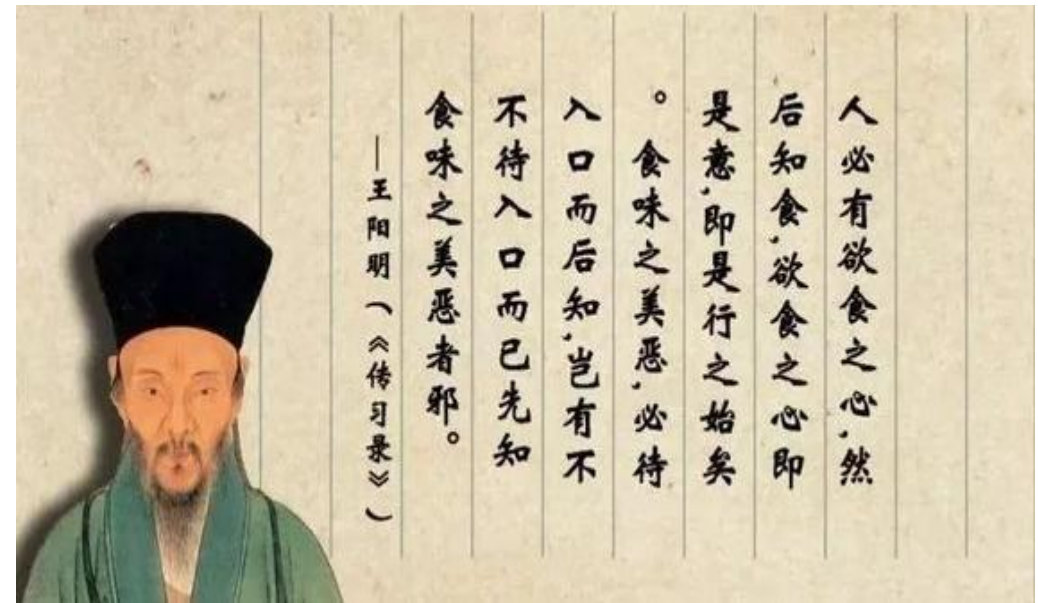 人必有欲食之心,然
后知食,欲食之心即
是意,即是行之始矣
。食味之美恶,必待
入口而后知,岂有不
不待入口而已先知
食味之美恶者邪。
—王阳明(《传习录》)